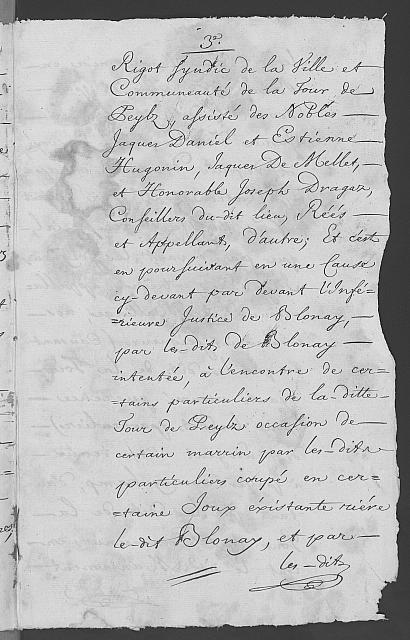 3.º
Rigot Syndic de la Ville et
Communeauté de la Tour de
Peylz, assisté des Nobles
Jaques Daniel et Estienne
Hugonin, Jaques De Mellet,
et Honorable Joseph Dragaz,
Conseillers du-dit lieu, Réés
et Appellants, d'autre; Et c'est
en poursuivant en une Cause
cy-devant par devant l'Infé=
=rieure Justice de Blonay,
par les-dits de Blonay
intentée, à l'encontre de cer=
=tains particuliers de la-ditte
Tour de Peylz occasion de
certain marrin par les-dits
particuliers coupé en cer=
=taine Joux éxistante riére
le-dit Blonay, et par
les-dits